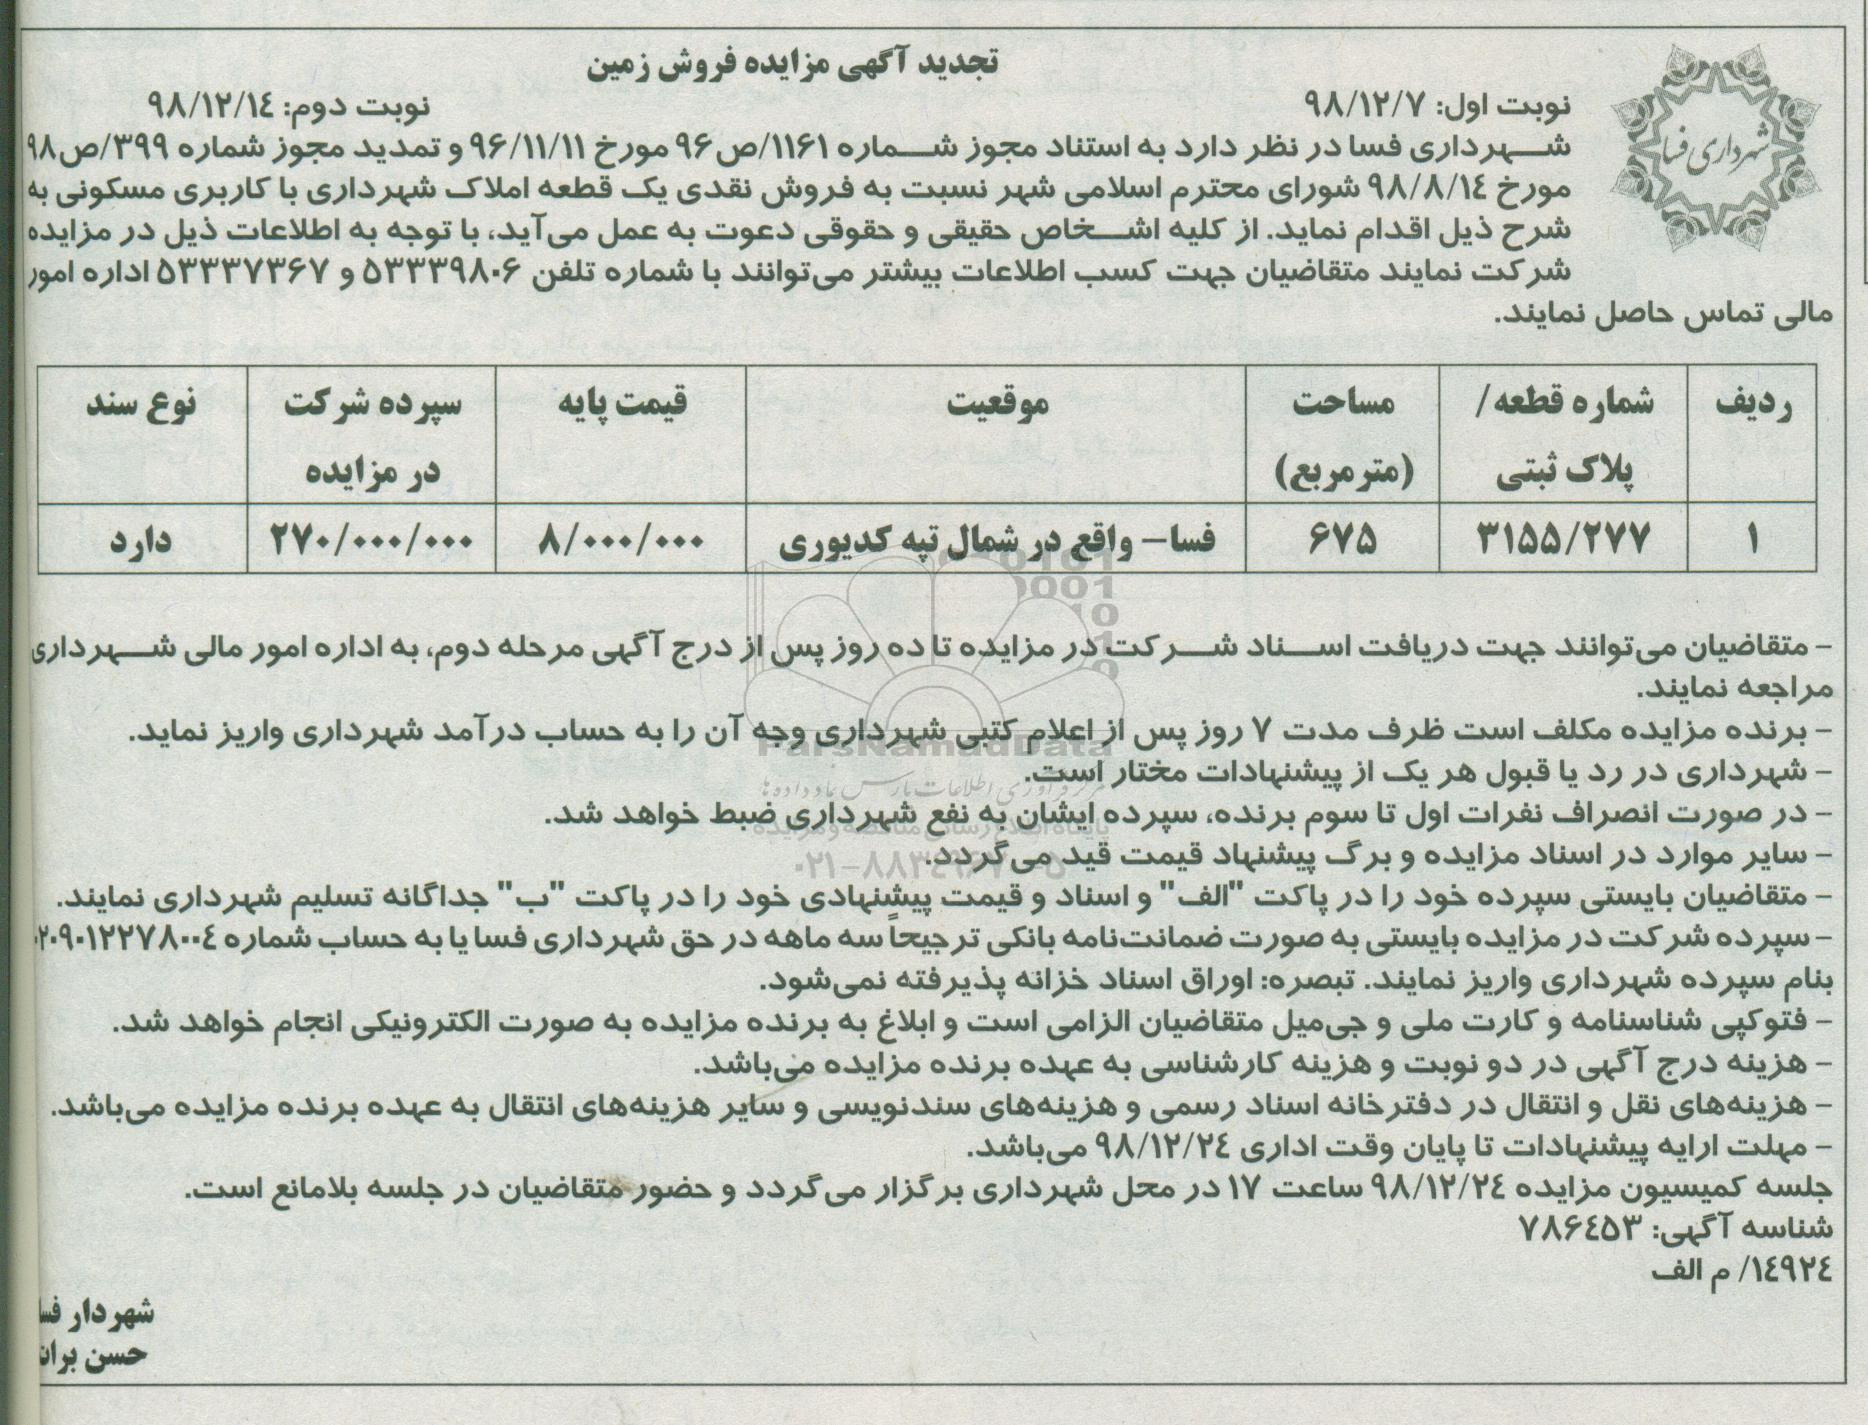 تجدید آگهی مزایده فروش زمین
شهرداری فسا
نوبت اول: ۹۸/۱۲/۷
نوبت دوم: ۹۸/۱۲/۱۴
شهرداری فسا در نظر دارد به استناد مجوز شماره ۱۱۶۱/ص۹۶ مورخ ۹۶/۱۱/۱۱ و تمدید مجوز شماره ۳۹۹/ص۹۸
مورخ ۹۸/۸/۱۴ شورای محترم اسلامی شهر نسبت به فروش نقدی یک قطعه املاک شهرداری با کاربری مسکونی به
شرح ذیل اقدام نماید. از کلیه اشخاص حقیقی و حقوقی دعوت به عمل می‌آید، با توجه به اطلاعات ذیل در مزایده
شرکت نمایند متقاضیان جهت کسب اطلاعات بیشتر می‌توانند با شماره تلفن ۵۳۳۳۹۸۰۶ و ۵۳۳۳۷۳۶۷ اداره امور
مالی تماس حاصل نمایند.
ردیف شماره قطعه/ مساحت موقعیت قیمت پایه سپرده شرکت نوع سند
پلاک ثبتی (مترمربع) در مزایده
۱ ۳۱۵۵/۲۷۷ ۶۷۵ فسا– واقع در شمال تپه کدیوری ۸/۰۰۰/۰۰۰ ۲۷۰/۰۰۰/۰۰۰ دارد
– متقاضیان می‌توانند جهت دریافت اسناد شرکت در مزایده تا ده روز پس از درج آگهی مرحله دوم، به اداره امور مالی شهرداری
مراجعه نمایند.
– برنده مزایده مکلف است ظرف مدت ۷ روز پس از اعلام کتبی شهرداری وجه آن را به حساب درآمد شهرداری واریز نماید.
ParsNamadData
– شهرداری در رد یا قبول هر یک از پیشنهادات مختار است.
مرکز فرآوری اطلاعات پارس نماد داده ها
– در صورت انصراف نفرات اول تا سوم برنده، سپرده ایشان به نفع شهرداری ضبط خواهد شد.
پایگاه اطلاع رسانی مناقصه و مزایده
– سایر موارد در اسناد مزایده و برگ پیشنهاد قیمت قید می‌گردد.
۰۲۱–۸۸۳۴۹۶۷۰–۵
– متقاضیان بایستی سپرده خود را در پاکت "الف" و اسناد و قیمت پیشنهادی خود را در پاکت "ب" جداگانه تسلیم شهرداری نمایند.
– سپرده شرکت در مزایده بایستی به صورت ضمانت‌نامه بانکی ترجیحاً سه ماهه در حق شهرداری فسا یا به حساب شماره
بنام سپرده شهرداری واریز نمایند. تبصره: اوراق اسناد خزانه پذیرفته نمی‌شود.
– فتوکپی شناسنامه و کارت ملی و جی‌میل متقاضیان الزامی است و ابلاغ به برنده مزایده به صورت الکترونیکی انجام خواهد شد.
– هزینه درج آگهی در دو نوبت و هزینه کارشناسی به عهده برنده مزایده می‌باشد.
– هزینه‌های نقل و انتقال در دفترخانه اسناد رسمی و هزینه‌های سندنویسی و سایر هزینه‌های انتقال به عهده برنده مزایده می‌باشد.
– مهلت ارایه پیشنهادات تا پایان وقت اداری ۹۸/۱۲/۲۴ می‌باشد.
جلسه کمیسیون مزایده ۹۸/۱۲/۲۴ ساعت ۱۷ در محل شهرداری برگزار می‌گردد و حضور متقاضیان در جلسه بلامانع است.
شناسه آگهی: ۷۸۶۴۵۳
۱۴۹۲۴/ م الف
شهردار فسا
حسن